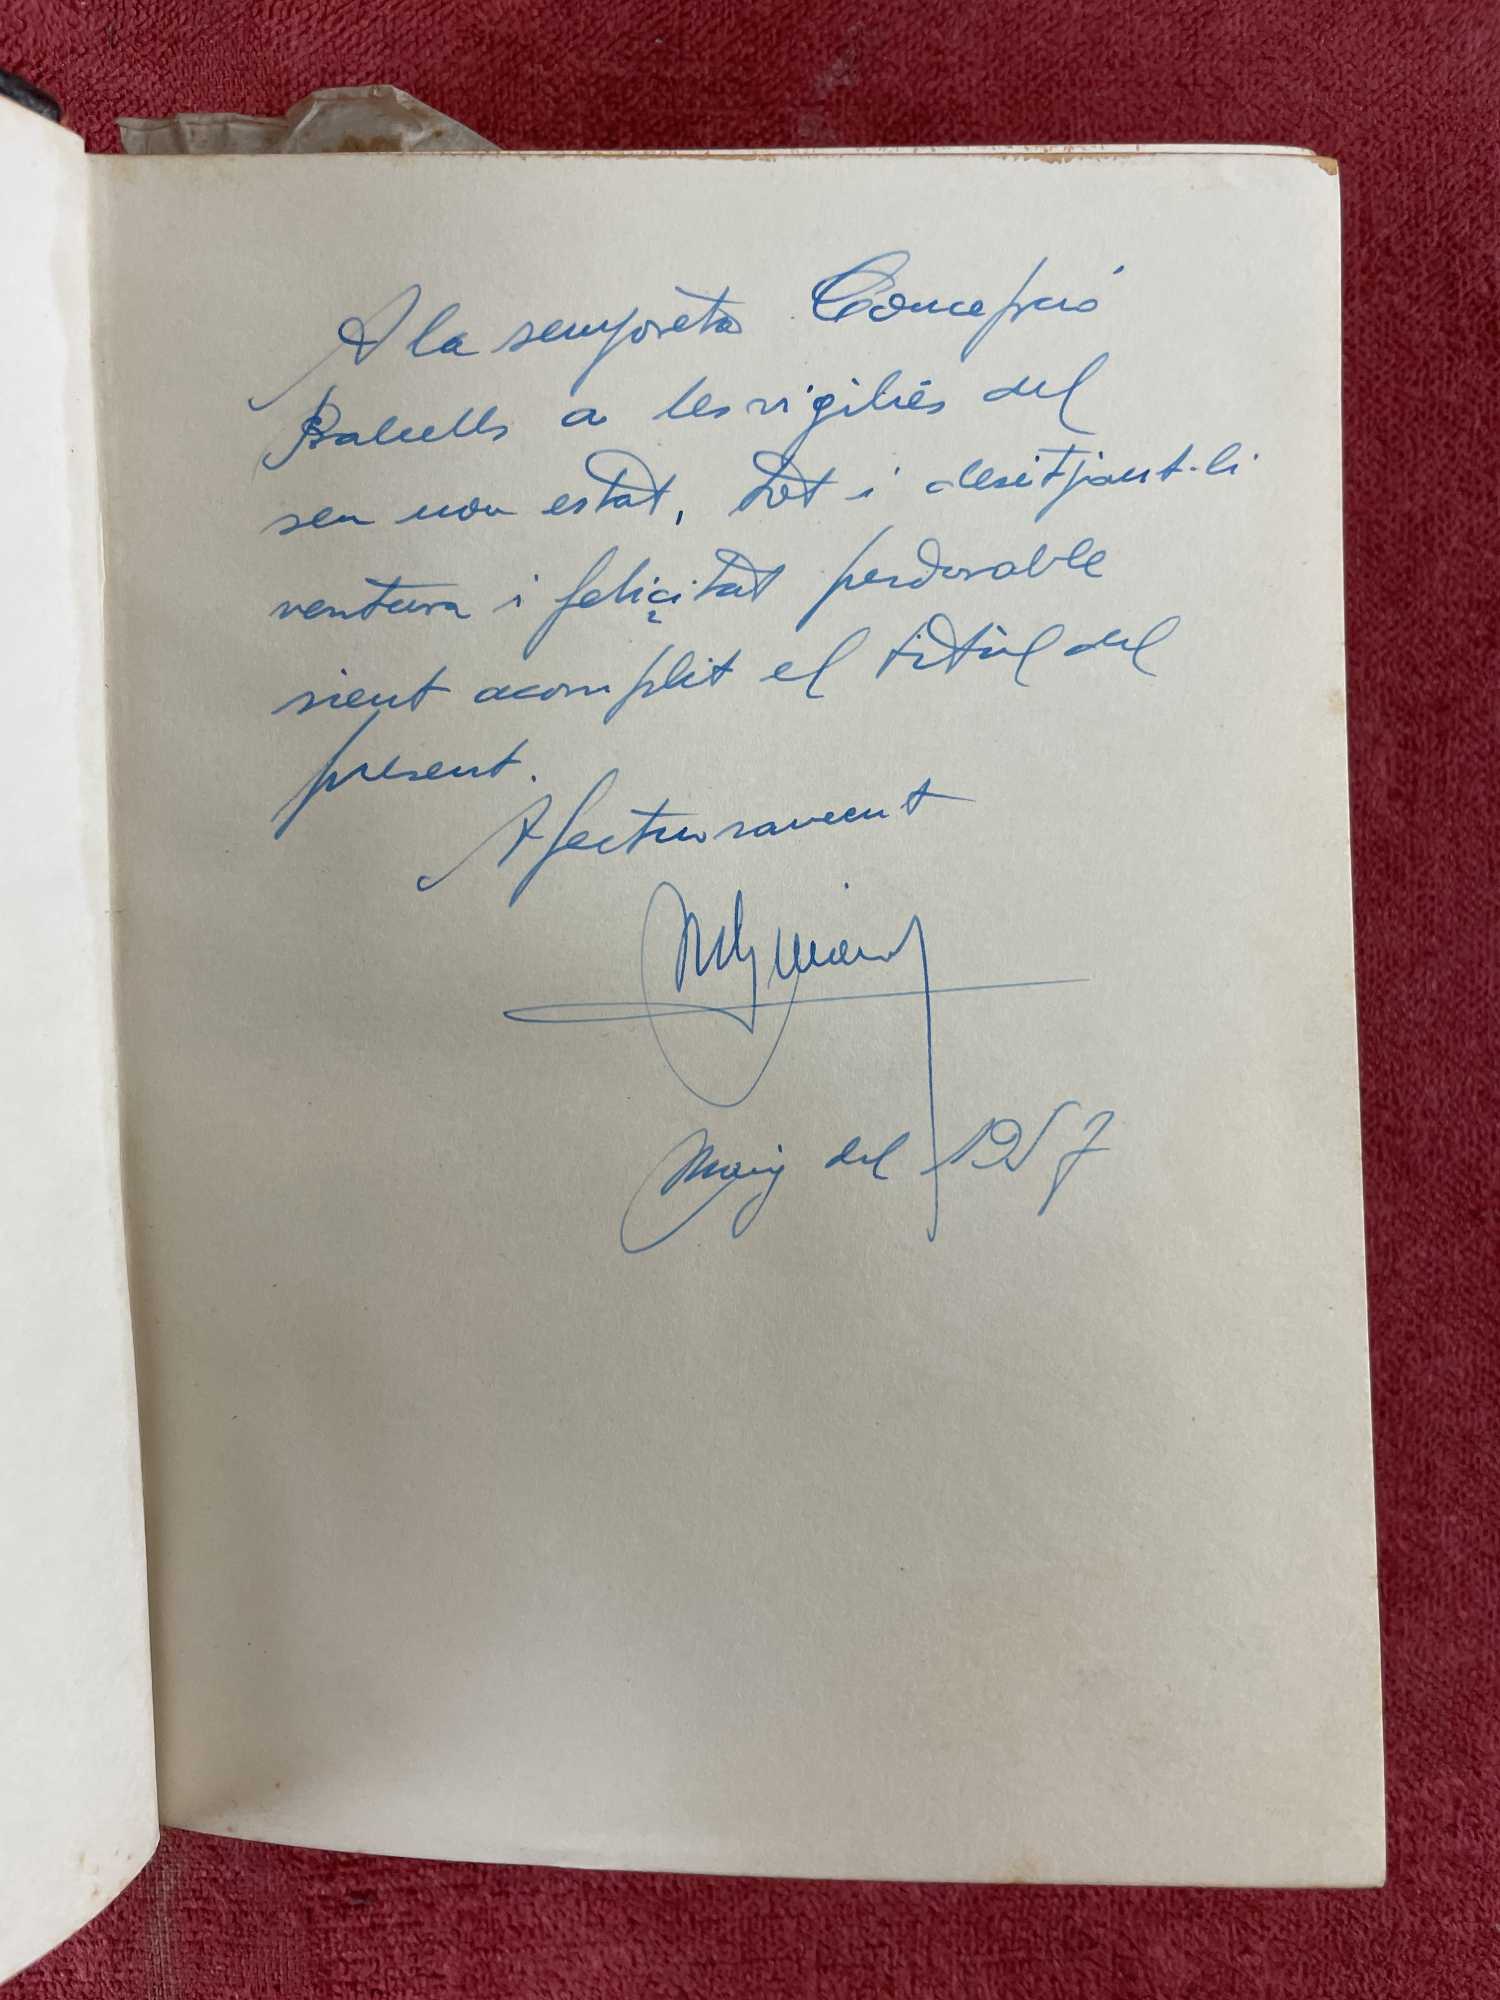 A la senyoreta Concepció
Balcells a les vigilies del
seu nou estat, tot i desitjant-li
ventura i feliçitat perdorable
sient acomplit el titul del
present.
Afectuosament
Maig del 1957